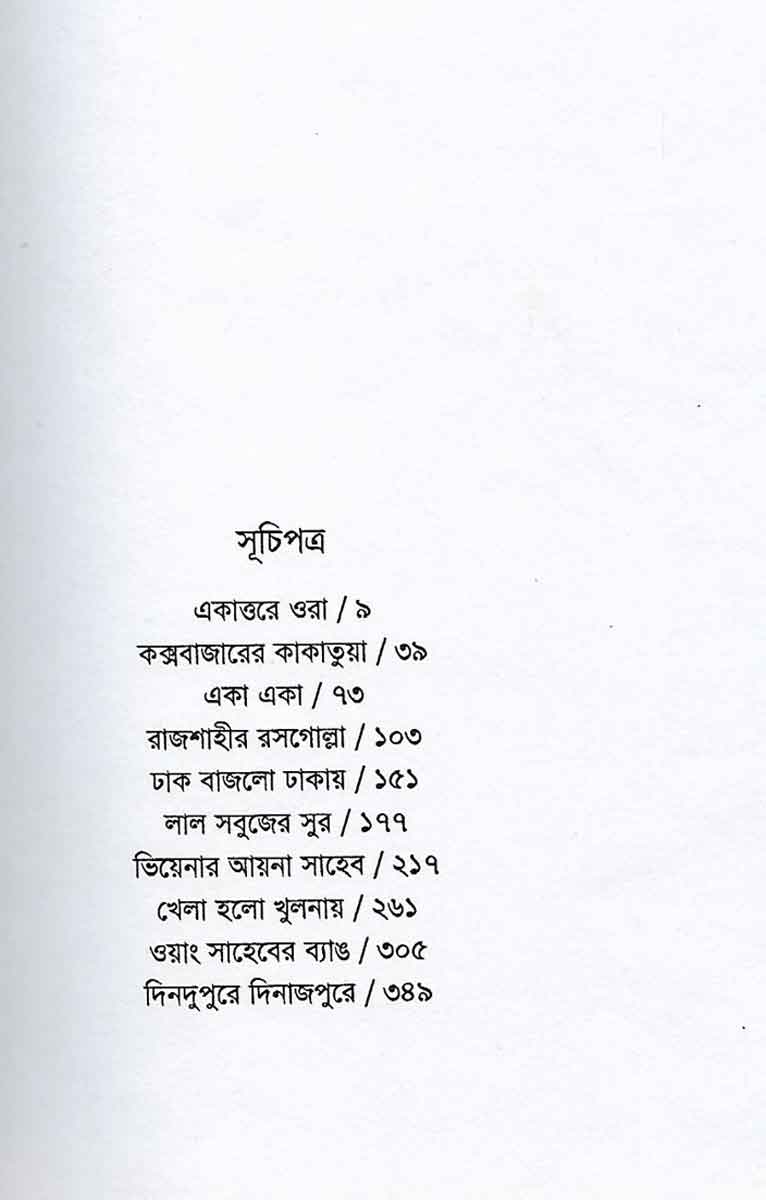 সূচিপত্র
একাত্তরে ওরা / ৯
কক্সবাজারের কাকাতুয়া / ৩৯
একা একা / ৭৩
রাজশাহীর রসগোল্লা / ১০৩
ঢাক বাজলো ঢাকায় / ১৫১
লাল সবুজের সুর / ১৭৭
ভিয়েনার আয়না সাহেব / ২১৭
খেলা হলো খুলনায় / ২৬১
ওয়াং সাহেবের ব্যাঙ / ৩০৫
দিনদুপুরে দিনাজপুরে / ৩৪৯